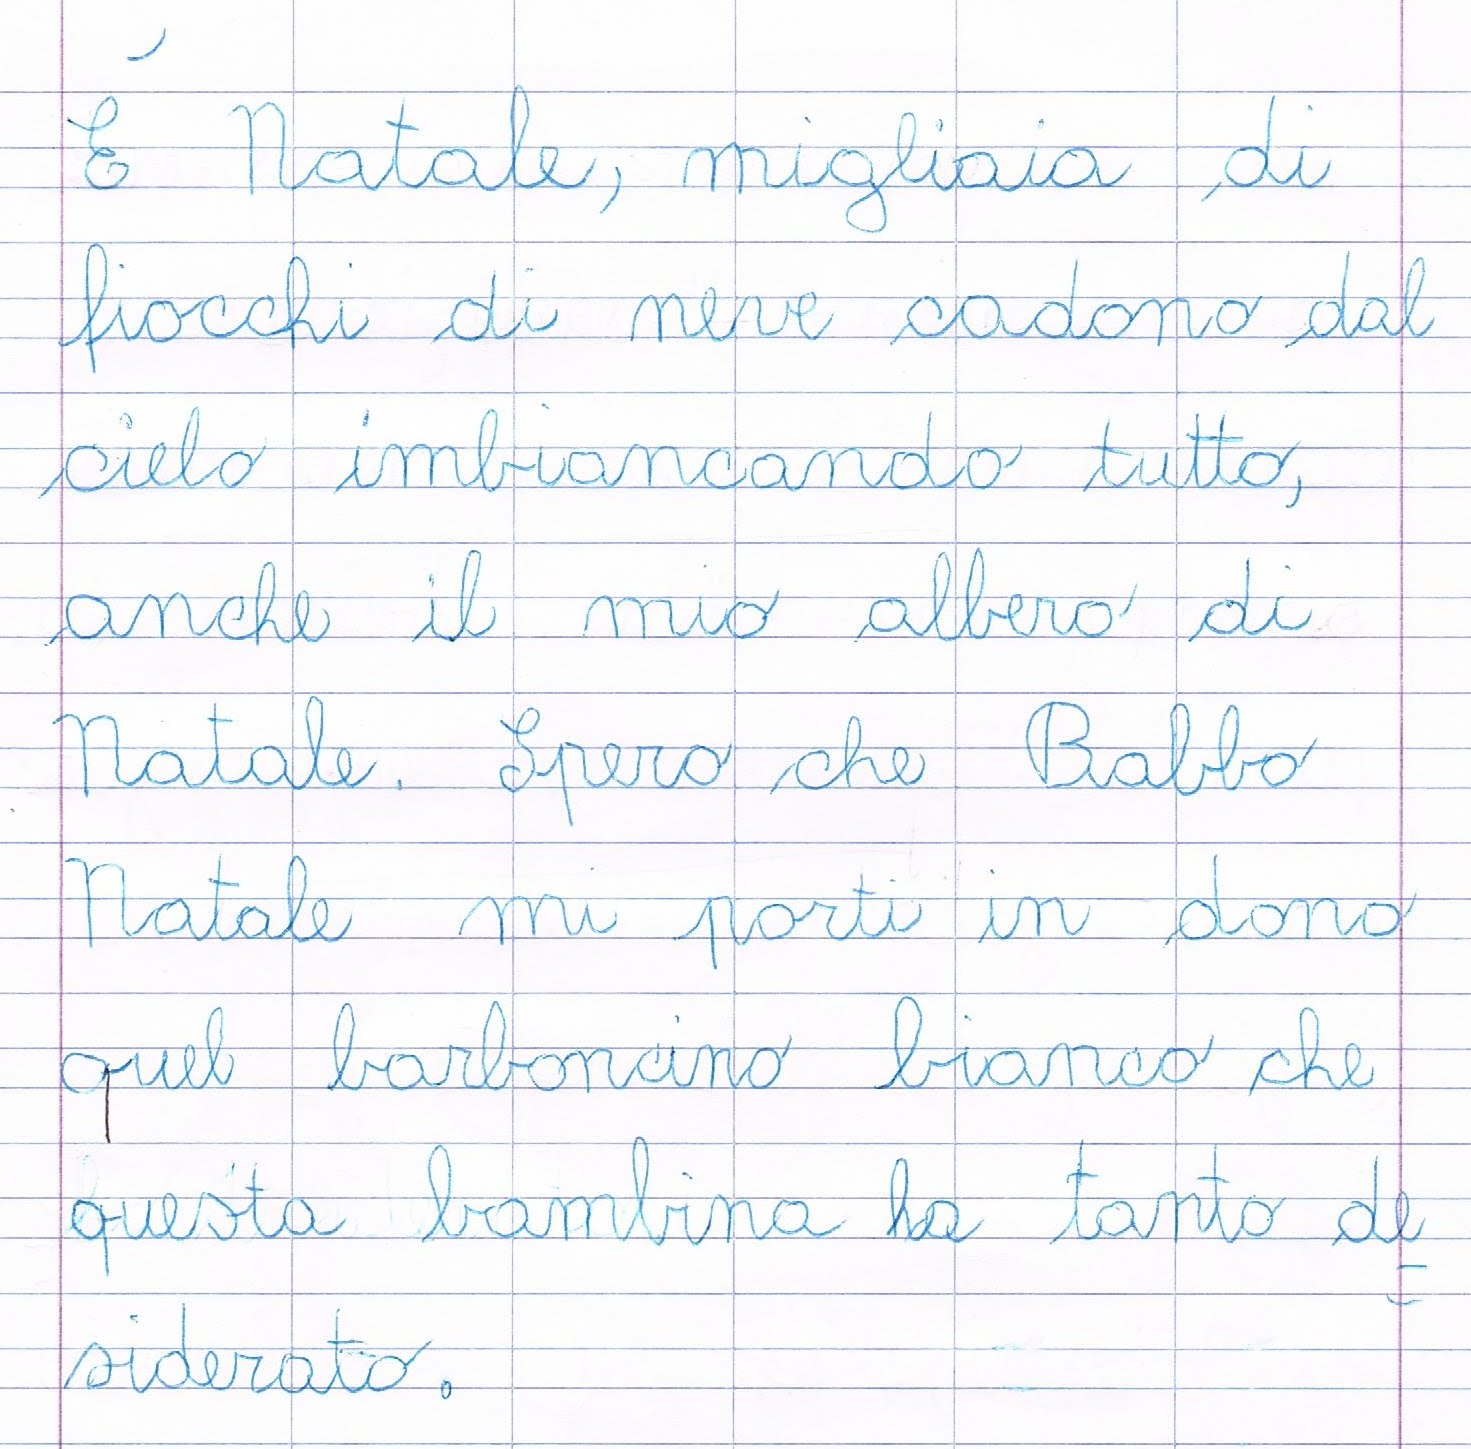 É Natale, migliaia di
fiocchi di neve cadono dal
cielo imbiancando tutto,
anche il mio albero di
Natale. Spero che Babbo
Natale mi porti in dono
quel barboncino bianco che
questa bambina ha tanto de=
siderato.